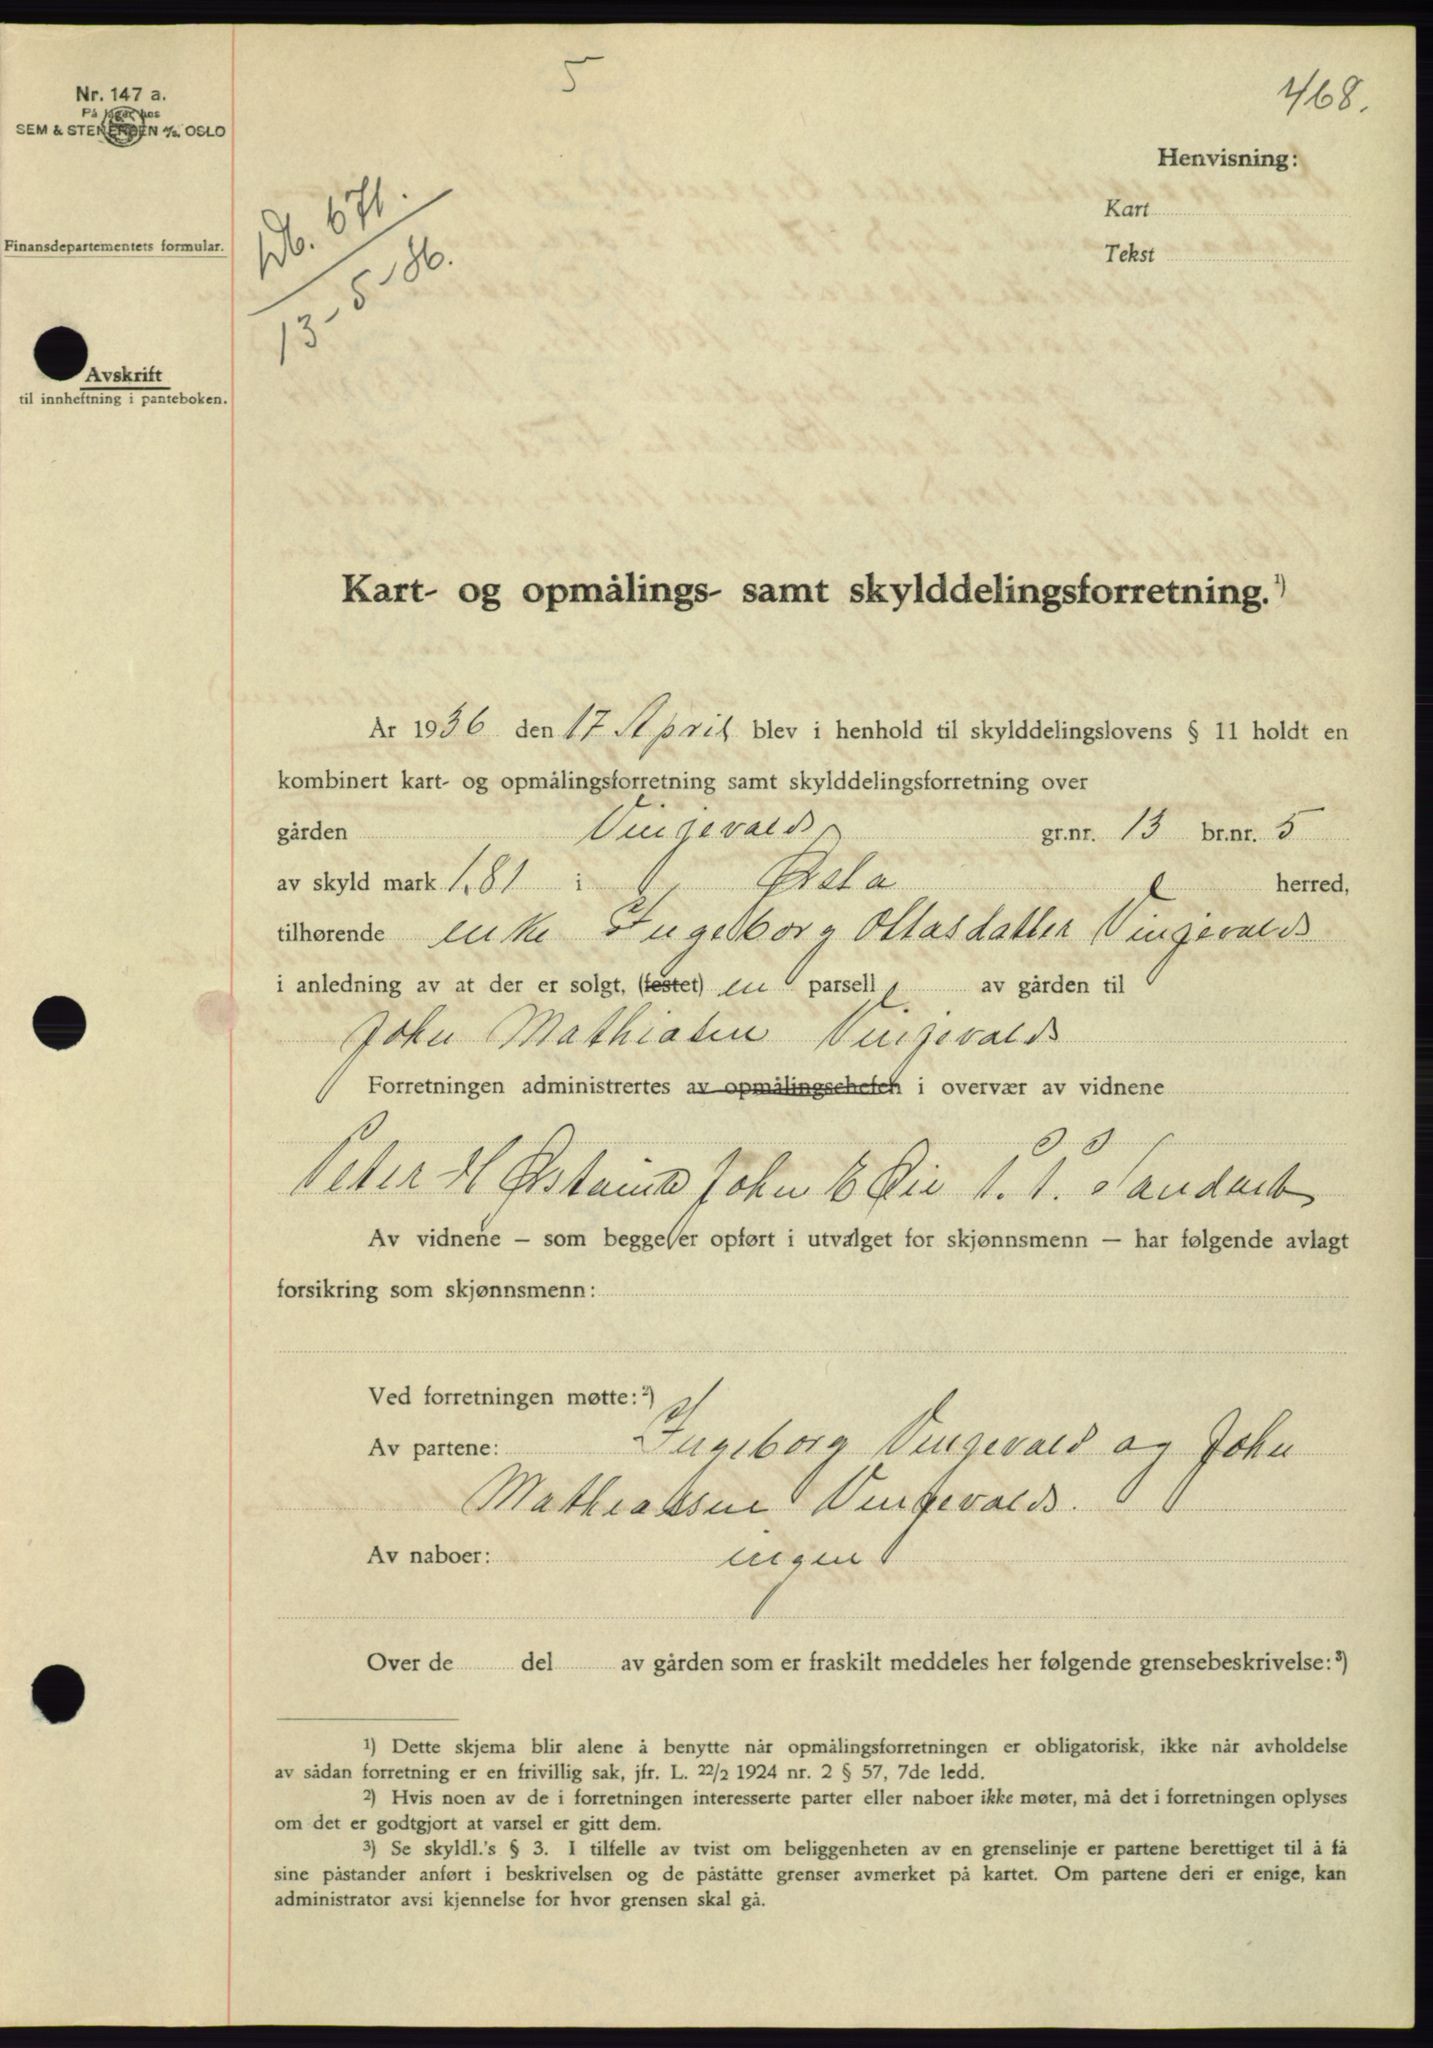 5
468.
Nr. 147 a.
På lager hos
SEM & STENERSEN A/S. OSLO
Henvisning:
Kart
Tekst
Finansdepartementets formular.
Db. 671.
13-5-36.
Avskrift
til innheftning i panteboken.
Kart- og opmålings- samt skylddelingsforretning.¹)
År 1936 den 17 April blev i henhold til skylddelingslovens § 11 holdt en
kombinert kart- og opmålingsforretning samt skylddelingsforretning over
gården Vingevalds gr.nr. 13 br.nr. 5
av skyld mark 1.81 i Ørsta herred,
tilhørende enke Ingeborg Ottasdatter Vingevalds
i anledning av at der er solgt, (festet) en parsell av gården til
John Mathiasen Vingevalds
Forretningen administrertes av opmålingschefen i overvær av vidnene
Peter H Ørstavik John E Øie P. P. Sandvik
Av vidnene – som begge er opført i utvalget for skjønnsmenn – har følgende avlagt
forsikring som skjønnsmenn:
Ved forretningen møtte:²)
Av partene: Ingeborg Vingevald og John
Mathiassen Vingevalds.
Av naboer: ingen
Over de del av gården som er fraskilt meddeles her følgende grensebeskrivelse:³)
¹) Dette skjema blir alene å benytte når opmålingsforretningen er obligatorisk, ikke når avholdelse
av sådan forretning er en frivillig sak, jfr. L. 22/2 1924 nr. 2 § 57, 7de ledd.
²) Hvis noen av de i forretningen interesserte parter eller naboer ikke møter, må det i forretningen oplyses
om det er godtgjort at varsel er gitt dem.
³) Se skyldl.'s § 3. I tilfelle av tvist om beliggenheten av en grenselinje er partene berettiget til å få
sine påstander anført i beskrivelsen og de påståtte grenser avmerket på kartet. Om partene deri er enige, kan
administrator avsi kjennelse for hvor grensen skal gå.